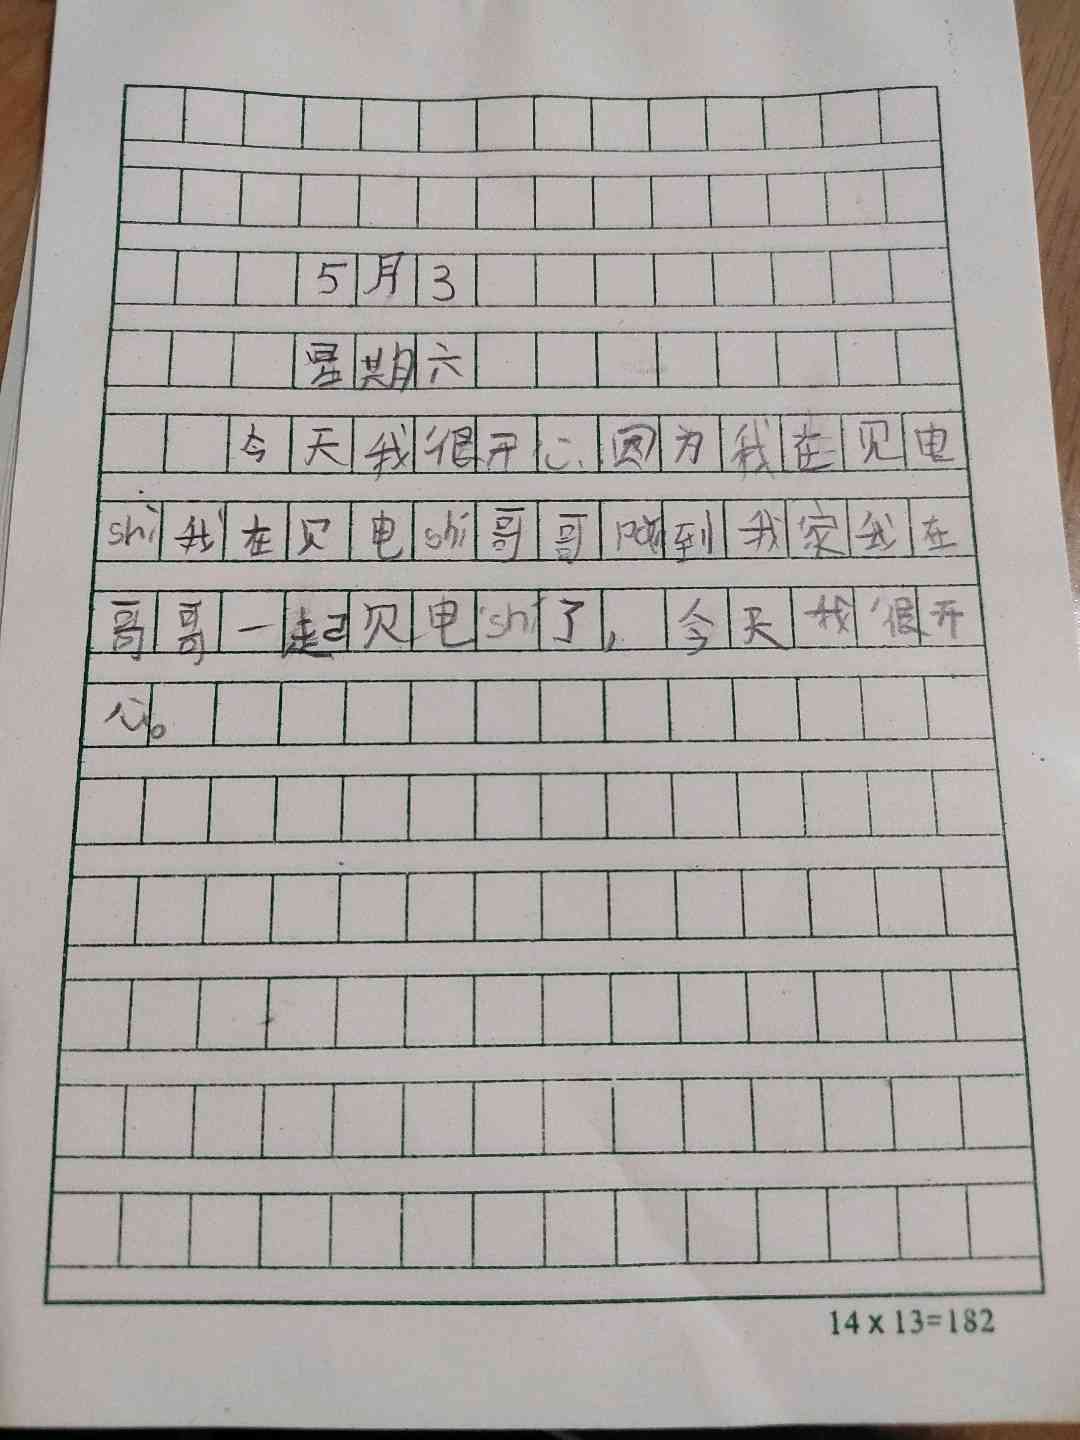 5月3
星期六
今天我很开心因为我在见电
shi我在贝电shi哥哥pǎo到我家我在
哥哥一起贝电shi了，今天我很开
心。
14x13=182